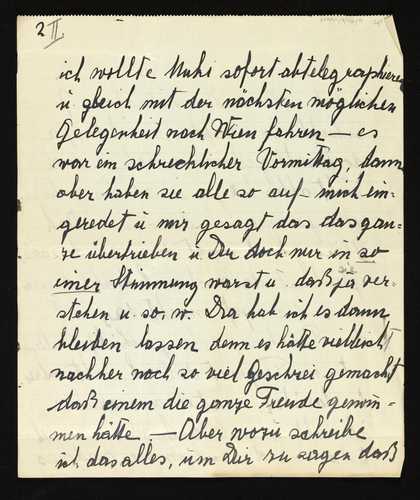 2 II
ich wollte Muki sofort abtelegraphieren
u gleich mit der nächsten möglichen
Gelegenheit nach Wien fahren — es
war ein schrecklicher Vormittag, dann
aber haben sie alle so auf mich ein-
geredet u mir gesagt das das gan-
ze übertrieben u Du doch nur in so
einer Stimmung warst u. daß ja ver-
stehen u. s. w. Da hab ich es dann
bleiben lassen denn es hätte vielleicht
nachher noch so viel Geschrei gemacht
daß einem die ganze Freude genom-
men hätte. — Aber wozu schreibe
ich das alles, um Dir zu sagen daß